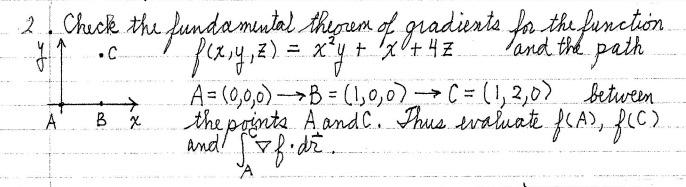 2. Check the fundamental theorem of gradients for the function
y .C f(x,y,z) = x²y + x + 4z and the path
A=(0,0,0) → B = (1,0,0) → C = (1,2,0) between
A B x the points A and C. Thus evaluate f(A), f(C)
and ∫_A^C ∇f·dr⃗.